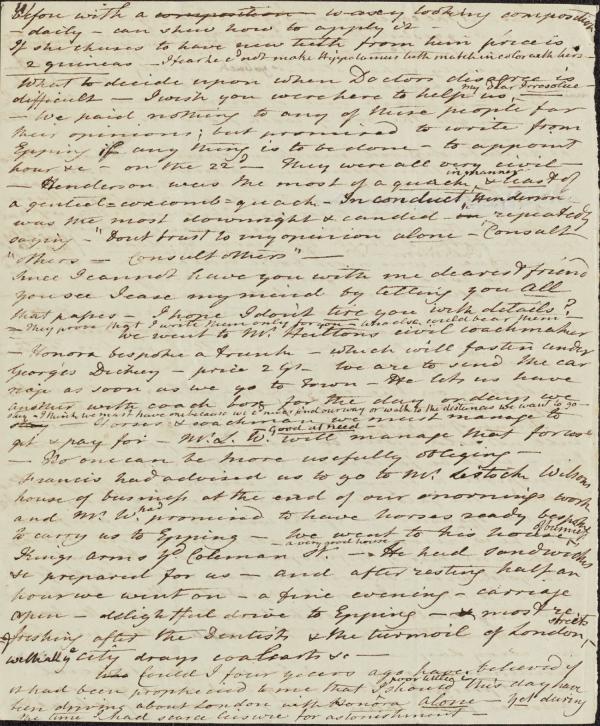 with a composition - waxy looking composition
- daily - can shew how to apply it
If she chuses to have new teeth from him price is
2 guineas - I fear he cd not make Hyppotamus teeth match in color with hers -
What to decide upon when Doctors disagree is
difficult - I wish you were here to help us, my dear
- We paid nothing to any of these people for
their opinions; but promised to write from
Epping if any thing is to be done - to appoint
hour &c - on the 22d - They were all very civil -
- Henderson was the most of a quack in manner, & least of
a genteel = coxcomb = quack - In conduct Henderson
was the most downright & candid - repeatedly
saying - "Dont trust to my opinion alone - Consult
"others - Consult others" -
Since I cannot have you with me dearest friend
you see I ease my mind by telling you All
that passes - I hope I don't tire you with details?
- They prove that I write them only for you - who else could bear them -
We went to Mr Huttons civil coachmaker
- Honora bespoke a trunk - which will fasten under
Georges Dickey - price 2 Gs - We are to send the car
riage as soon as we go to Town - He lets us have
another with coach box for the day or days we
stay I think we must have one because we cd never find our way or walk to the distances we want to go -
Horses & coachman we must manage to
get & pay for - Mr L. W. will manage that for us
Good at need
- No one can be more usefully obliging -
Francis had advised us to go to Mr Lestock Wilsons
house of business at the end of our mornings work
and Mr W. had promised to have horses ready bespoke
to carry us to Epping - We went to his house of business
- a very good house
Kings arms Yd Coleman St. - He had sandwiches
&c prepared for us - and after resting half an
hour we went on - a fine evening - carriage
open - delightful drive to Epping - & most re
freshing after the Dentists & the turmoil of London, streets
with all ye City drays coalcarts &c -
Could I four years ago have believed if
it had been prophecied to me that I should this day have
been driving about London with Honora alone - Yet during
the time I had scarce leisure for astonishment